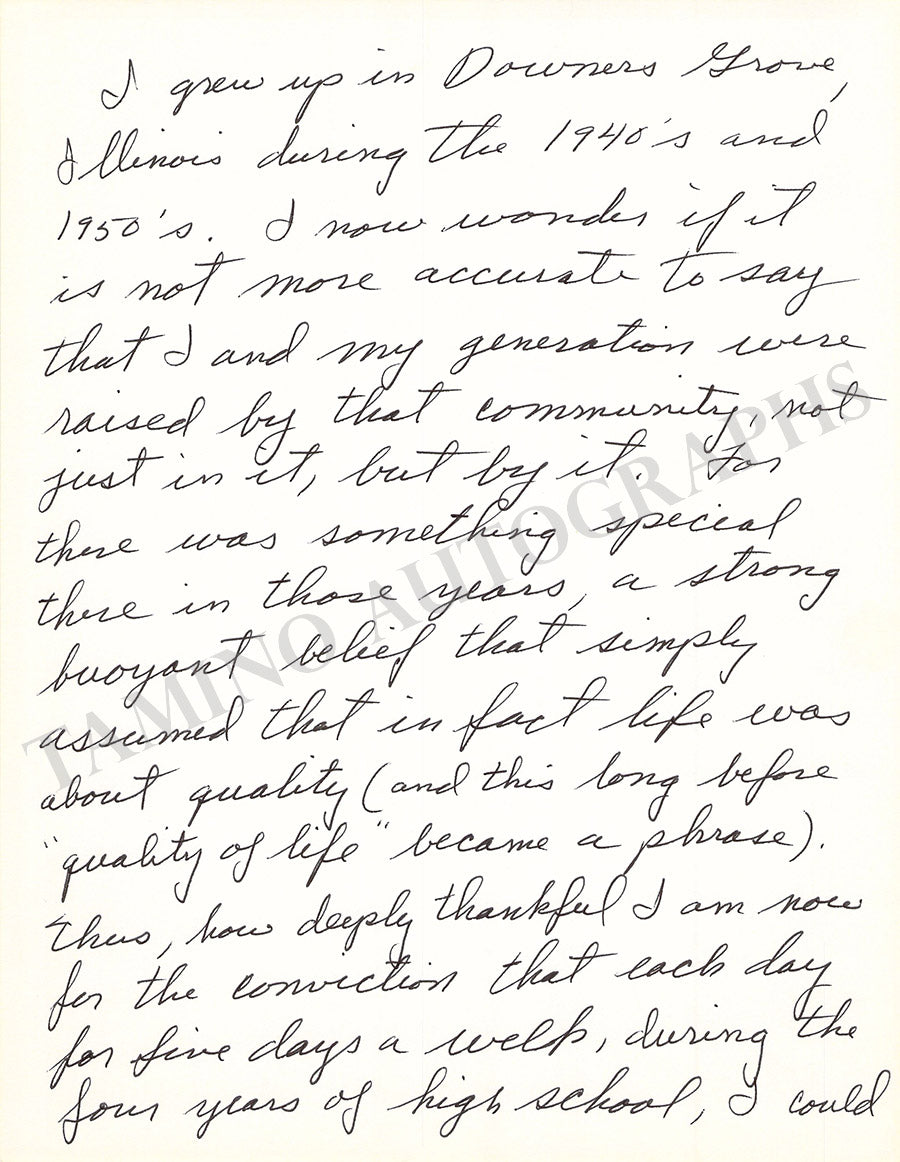 I grew up in Downers Grove,
Illinois during the 1940's and
1950's. I now wonder if it
is not more accurate to say
that I and my generation were
raised by that community, not
just in it, but by it. For
there was something special
there in those years, a strong
buoyant belief that simply
assumed that in fact life was
about quality (and this long before
"quality of life" became a phrase).
Thus, how deeply thankful I am now
for the conviction that each day
for five days a week, during the
four years of high school, I could
TAMINO AUTOGRAPHS